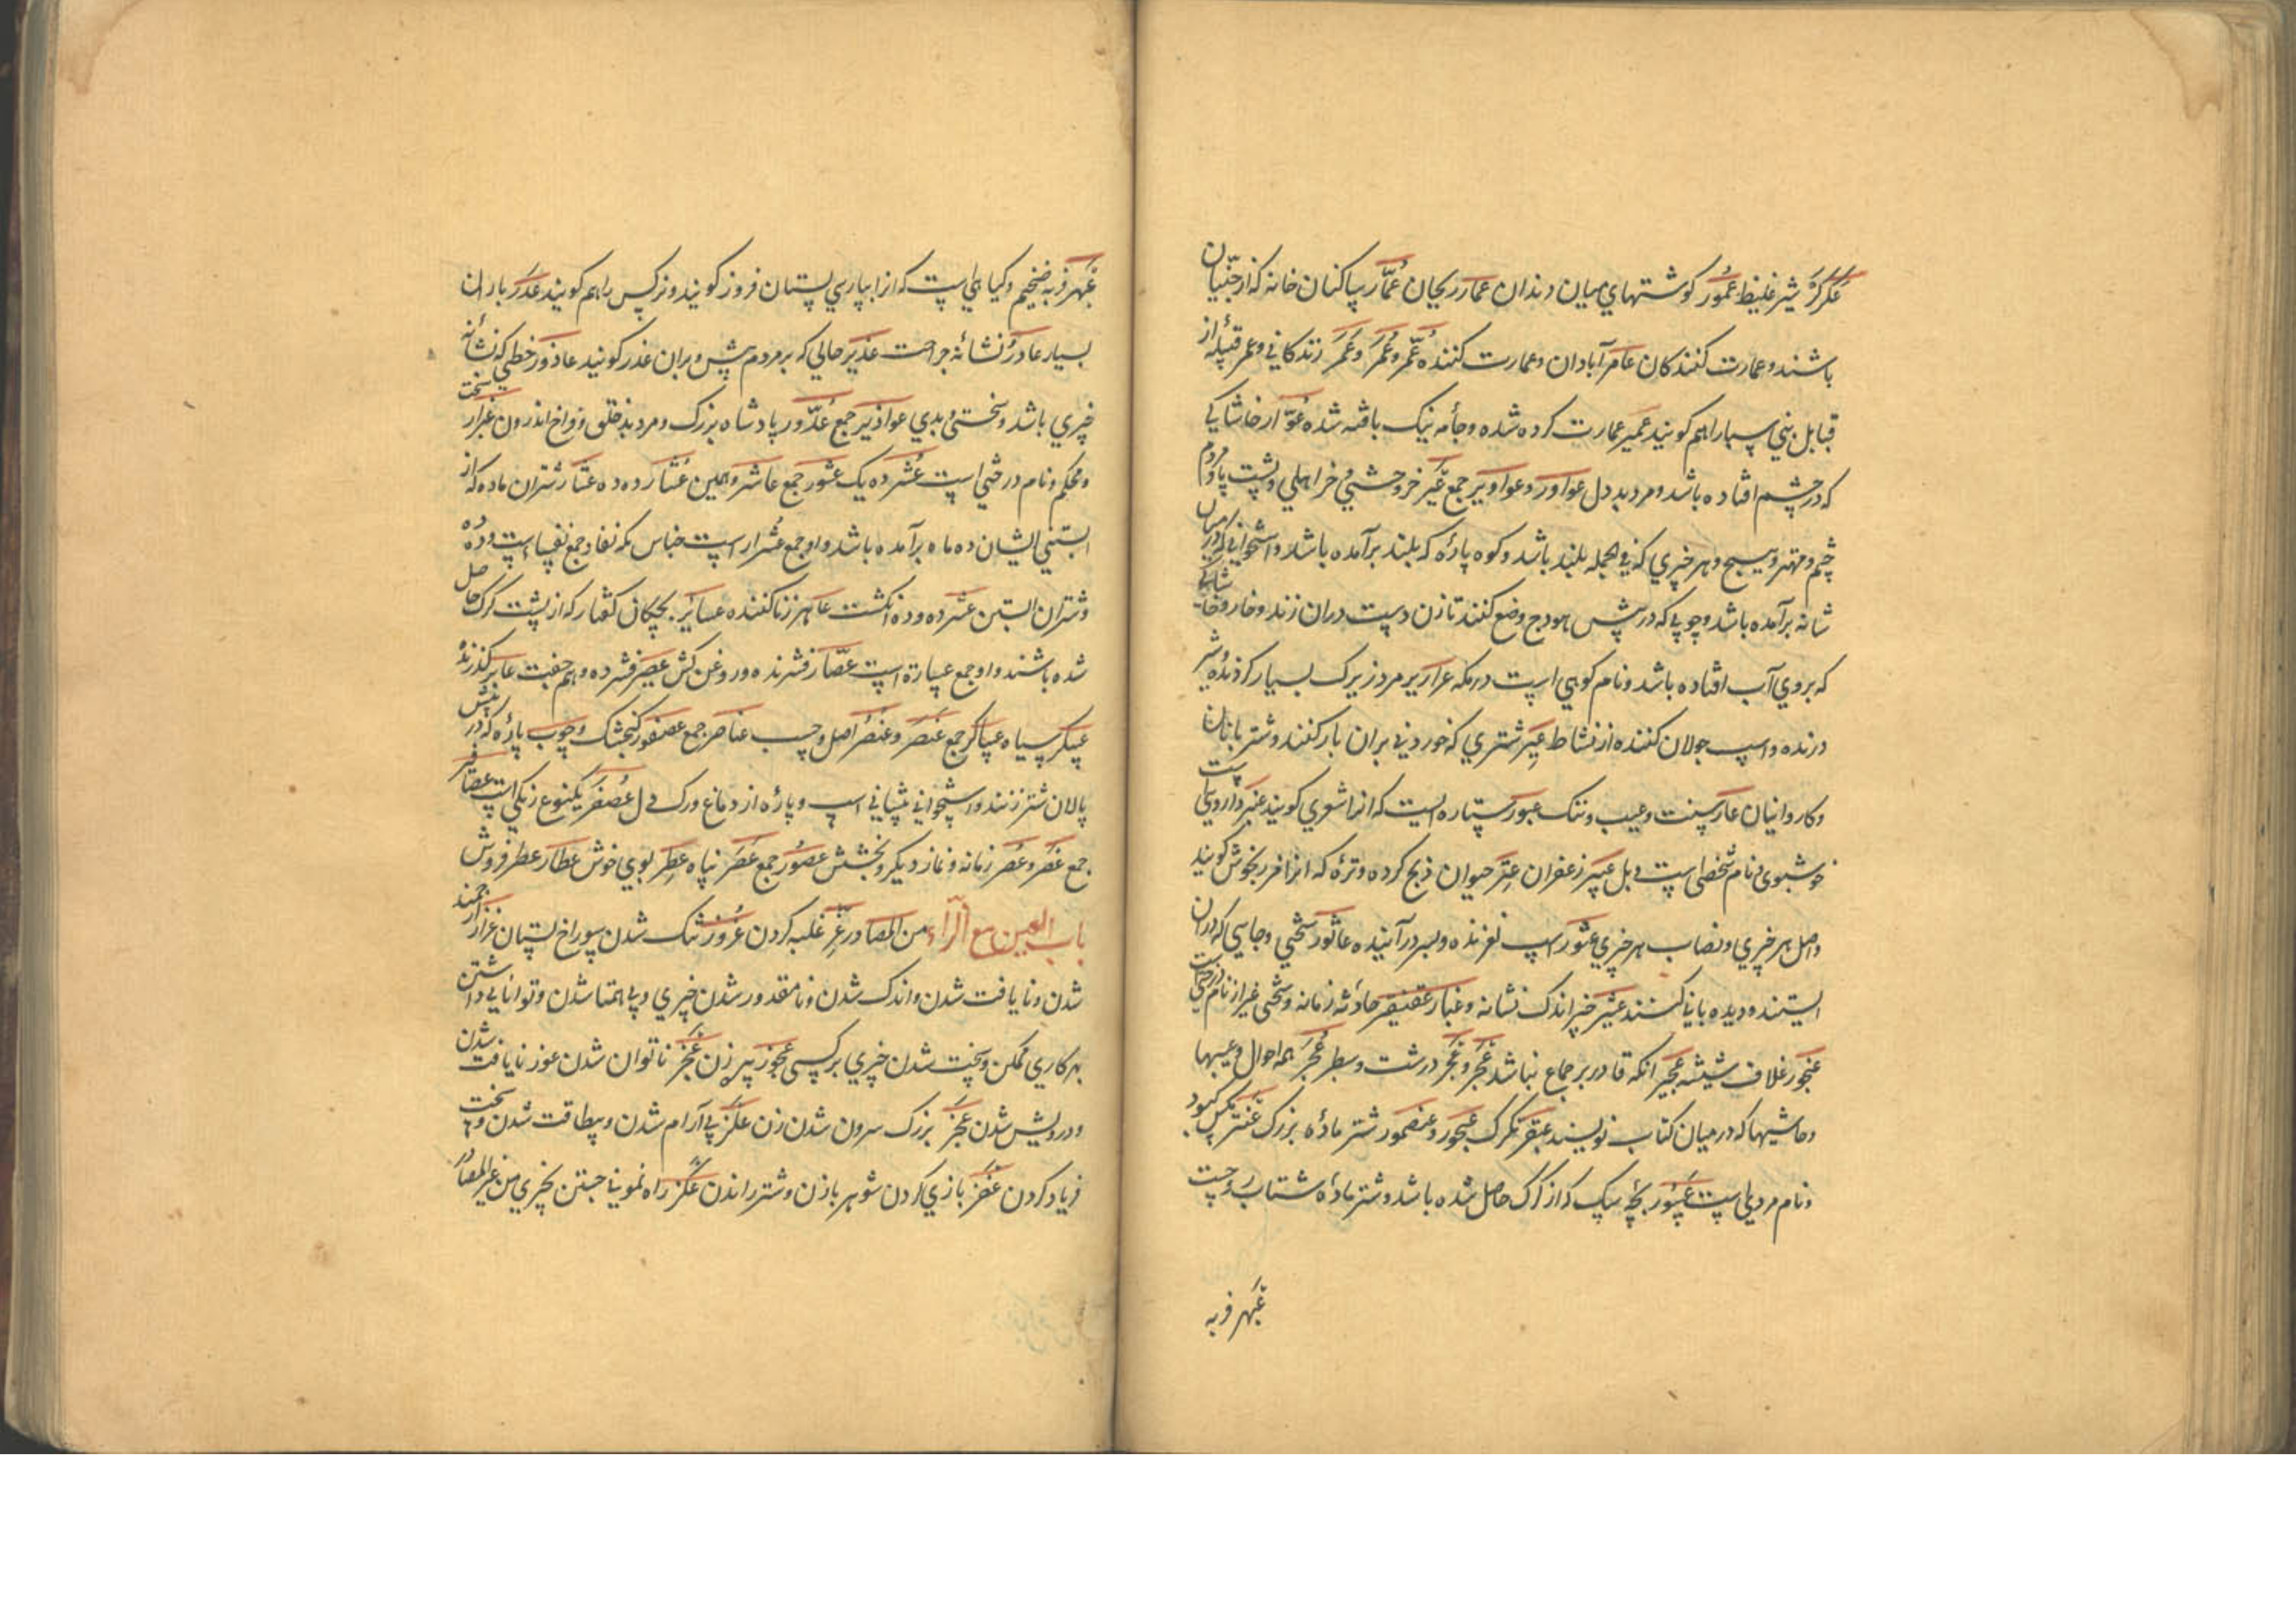 عَکَرکَرْ شیر غلیظ عُمُور کوشتهاي میان دندان عمار ریحان عُمَّار پاکنان خانه که از جنّیان
باشند و عمارت کنندکان عامر آبادان و عمارت کننده عُمْر و عُمُر و عَمْر زندکاني و عمر قبیله از
قبایل بني سپار اهم کویند عمیر عمارت کرده شده و جامه نیک بافته شده عُوّار خاشاکي
که در چشم افتاده باشد و مرد بد دل عواور و عواویر جمع عَیر خر وحشي و خر اهلي و پشت پا و مردم
چشم و مهتر و هیچ و هر چیزي که في الجمله بلند باشد و کوه پارهٔ که بلند برآمده باشد و استخواني که در میان
شانه برآمده باشد و چوبي که در پیش هودج وضع کنند تا زن دست دران زند و خار و خاشاکي
که بروي آب افتاده باشد و نام کوهي است در مکه مرد زیرک بسیار کردنده و شیر
درنده و اسپ جولان کننده از نشاط عِیر شتري که خوردني بران بار کنند و شتر بانان
و کاروانیان عار سنت و عیب و ننک عبور ستاره ایست که انرا شعري کویند عنبر داروییست
خوشبوي و نام شخصي است عبیر زعفران عتر حیوان ذبح کرده و ترهٔ که انرا مرزنجوش کویند
و اصل هر چیزي و نصاب هر چیزي عثور اسپ لغزنده و بسر درآینده عاثور سختي و جایي که دران
ایستند و دیده باني کنند عثیر اندک نشانه و غبار عنقفیر حادثه زمانه و سختي نام درختیست
عنجور غلاف شیشه عجیر انکه قادر بر جماع نباشد عَجِر و عَجُر درشت و سطبر عُجَر همه احوال و عیبها
و حاشیها که در میان کتاب نویسند عبقر تکرک عیجور و عیضمور شتر مادهٔ بزرک عنتر مکس کبود
و نام مردیست بچه سک که از کرک حاصل شده باشد و شتر مادهٔ شتاب رو چست
عبهر فربه
عبهر فربه ضخیم و کیاهي است که انرا بپارسي بستان فروز کویند و نرکس را هم کویند عدر باران
بسیار عاذر نشانهٔ جراحت عذیر حالي که بر مردم پیش و بران عذر کویند عاذور خطي که نشانه
چیزي باشد و سختي و بدي عواذیر جمع عذّور پادشاه بزرک و مرد بد خلق و فراخ اندرون سخت
و محکم و نام درختي است عُشر ده یک عشور جمع عاشر و همین عُشّار ده ده عشار شتران ماده که از
آبستني ایشان ده ماه برآمده باشد و او جمع عُشرا است نفاس جمع نفسا است و دُه
و شتران آبستن عشر ده و ده انکشت عاهر زنا کننده عسابر بچکان کفتار که از پشت کرک حاصل
شده باشند و او جمع عسباره است عصّار فشرنده و روغن کش عصیر فشرده و هم جفت عابر کذرندهٔ
عسکر سپاه عساکر جمع عنصَر و عنصُر اصل و حسب عناصر جمع عصفور کنجشک و چوب پارهٔ که در پیش
پالان شتر زنند و استخواني پیشاني اسپ و پارهٔ از دماغ و رک دل عُصفُر یکنوع رنکي است عصافیر
جمع عَصر و عُصر زمانه و نماز دیکر و بخشش عصور جمع عَصَر پناه عِطر بوي خوش عطار عطر فروش
باب العین مع الزّاء من المصادر عِزّ غلبه کردن عُزوز تنک شدن سوراخ پستان عزاز ارجمند
شدن و نایافت شدن و اندک شدن و نامقدور شدن چیزي و بي همتا شدن و توانایي داشتن
بهر کاري ممکن و سخت شدن چیزي بر کسي عجوز پیر زن عَجز ناتوان شدن عوز نایافت شدن
و درویش شدن عَجَز بزرک سرون شدن زن عَلَز بي آرام شدن و بیطاقت شدن و سخت
فریاد کردن عَفز بازي کردن شوهر با زن و شتر راندن عَکز راه نمودن جستن بچیزي من غیر المصادر